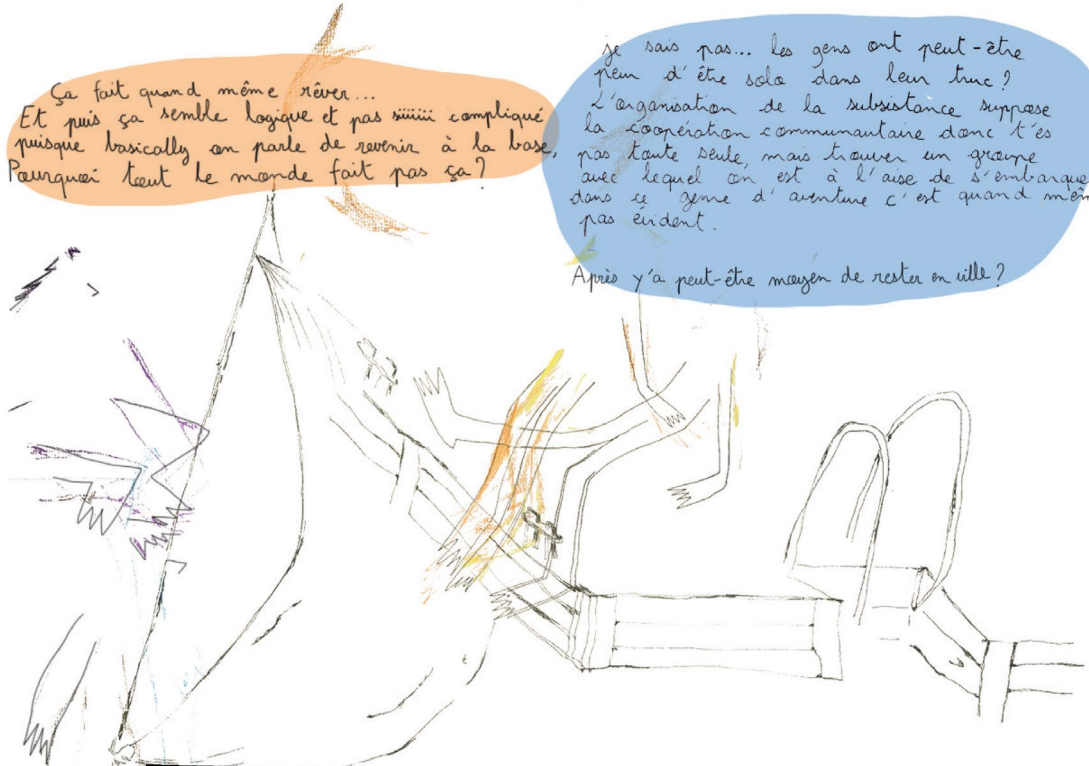 Ça fait quand même rêver...
Et puis ça semble logique et pas siiiiiii compliqué
puisque basically on parle de revenir à la base.
Pourquoi tout le monde fait pas ça ?
je sais pas... les gens ont peut-être
peur d'être solo dans leur truc ?
L'organisation de la subsistance suppose
la coopération communautaire donc t'es
pas toute seule, mais trouver un groupe
avec lequel on est à l'aise de s'embarque
dans ce genre d'aventure c'est quand mêm
pas évident.
Après y'a peut-être moyen de rester en ville ?